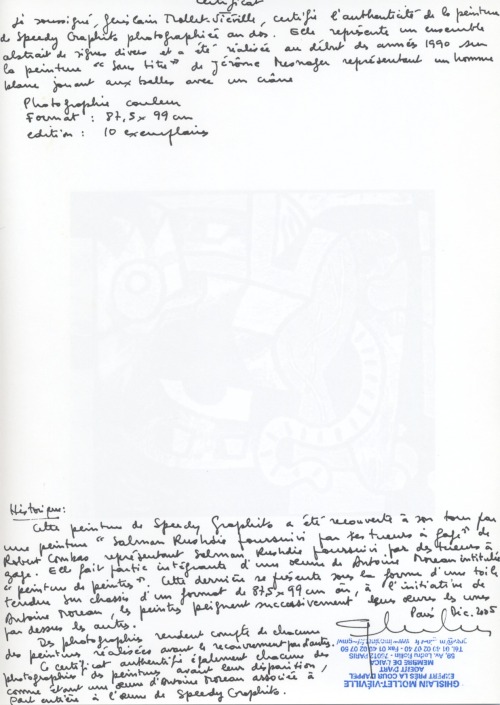 Certificat
Je soussigné, Ghislain Mollet-Viéville, certifie l'authenticité de la peinture
de Speedy Graphito photographiée au dos. Elle représente un ensemble
abstrait de signes divers et a été réalisée au début des années 1990 sur
la peinture "Sans titre" de Jérôme Mesnager représentant un homme
blanc jouant aux balles avec un crâne
Photographie couleur
Format : 87,5 x 99 cm
édition : 10 exemplaires
Historique :
Cette peinture de Speedy Graphito a été recouverte à son tour par
une peinture "Salman Rushdie poursuivi par les tueurs à gage" de
Robert Combas représentant Salman Rushdie poursuivi par des tueurs à
gage. Elle fait partie intégrante d'une œuvre de Antoine Moreau intitulée
"peinture de peintres". Cette dernière se présente sous la forme d'une toile
tendue sur chassis d'un format de 87,5 x 99 cm où, à l'initiative de
Antoine Moreau, les peintres peignent successivement leurs œuvres les unes
par dessus les autres.
Paris Dic. 2005
Des photographies rendent compte de chacune
des peintures réalisées avant le recouvrement par d'autres.
Ce certificat authentifie également chacune des
photographies des peintures avant leur disparition,
comme étant une œuvre d'Antoine Moreau associée à
part entière à l'œuvre de Speedy Graphito.
GHISLAIN MOLLET-VIÉVILLE
EXPERT PRÈS LA COUR D'APPEL
AGENT D'ART
MEMBRE DE L'AICA
58, Av. Ledru Rollin - 75012 PARIS
Tél. 01 43 02 07 40 - Fax 01 43 02 60 59